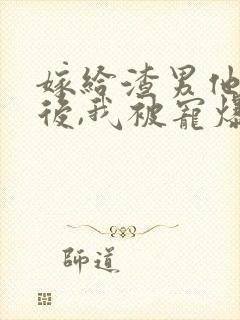 嫁給渣男他
後,我被寵爆
師道